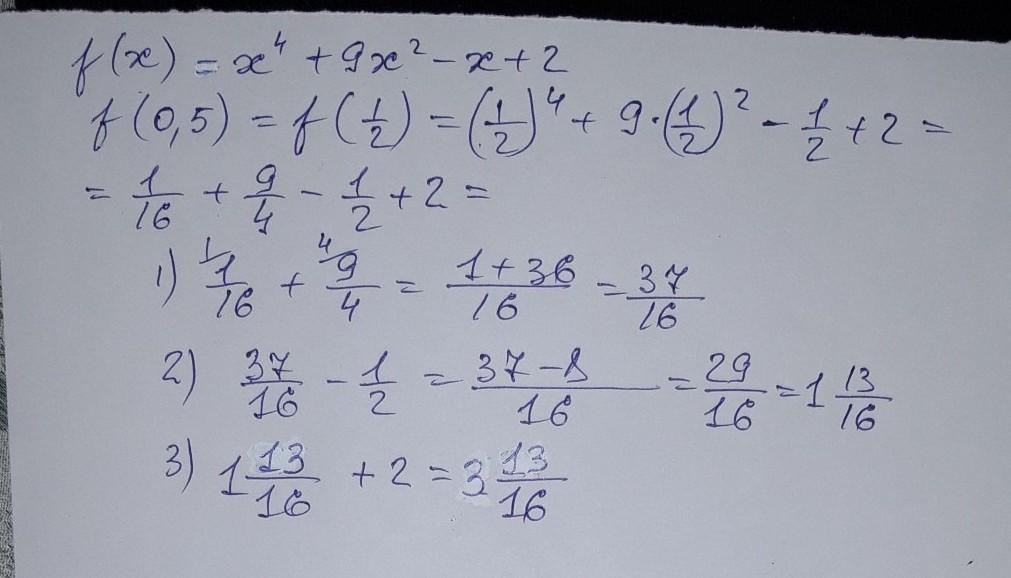 f(x) = x⁴ + 9x² - x + 2
f(0,5) = f(1/2) = (1/2)⁴ + 9·(1/2)² - 1/2 + 2 =
= 1/16 + 9/4 - 1/2 + 2 =
1) ¹⁄1/16 + ⁴⁄9/4 = (1+36)/16 = 37/16
2) 37/16 - 1/2 = (37-8)/16 = 29/16 = 1 13/16
3) 1 13/16 + 2 = 3 13/16